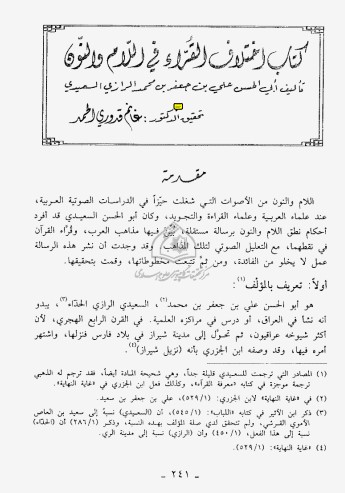 كتاب اختلاف القُرَّاء في اللام والنون
تأليف أبي الحسن علي بن جعفر بن محمد الرازي السعيدي
تحقيق الدكتور: غانم قدوري الحمد
مقدمة
اللام والنون من الأصوات التي شغلت حيّزاً في الدراسات الصوتية العربية،
عند علماء العربية وعلماء القراءة والتجويد، وكان أبو الحسن السعيدي قد أفرد
أحكام نطق اللام والنون برسالة مستقلة، بيّن فيها مذاهب العرب، وقُرّاء القرآن
في نطقهما، مع التعليل الصوتي لتلك المذاهب. وقد وجدت أن نشر هذه الرسالة
عمل لا يخلو من الفائدة، ومن ثمّ تتبعت مخطوطاتها، وقمت بتحقيقها.
أولاً: تعريف بالمؤلف(١):
هو أبو الحسن علي بن جعفر بن محمد(٢)، السعيدي الرازي الحذاء(٣)، يبدو
أنه نشأ في العراق، أو درس في مراكزه العلمية. في القرن الرابع الهجري، لأن
أكثر شيوخه عراقيون، ثم تحوّل إلى مدينة شيراز في بلاد فارس فنزلها، واشتهر
أمره فيها، وقد وصفه ابن الجزري بأنه (نزيل شيراز)(٤).
(١) المصادر التي ترجمت للسعيدي قليلة جداً، وهي شحيحة المادة أيضاً، فقد ترجم له الذهبي
ترجمة موجزة في كتابه «معرفة القراء»، وكذلك فعل ابن الجزري في كتابه «غاية النهاية».
(٢) في «غاية النهاية» لابن الجزري: (٥٢٩/١)، علي بن جعفر بن سعيد.
(٣) ذكر ابن الأثير في كتابه «اللباب»: (٥٤٥/١)، أن (السعيدي) نسبة إلى سعيد بن العاص
الأموي القرشي، ولم تتحقق لدي صلة المؤلف بهذه النسبة، وذكر (٢٨٦/١) أن (الحذاء)
نسبة إلى هذا الفعل، (٤٥٠/١) وأن (الرازي) نسبة إلى مدينة الري.
(٤) «غاية النهاية»: (٥٢٩/١).
- ٢٤١ -